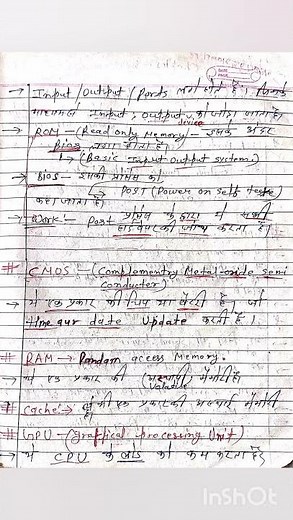 → Input/Output/Ports लगे होते हैं। जिनके
माध्यमसे Input, Output device को जोड़ा जाता है।
→ ROM - (Read only Memory) - इसके अंदर
Bios लगा होता है।
↳ (Basic Input Output system)
→ Bios - इसकी प्रोसेस को
↳ POST (Power on self test)
कहा जाता है।
→ Work:- Post प्रोसेस के द्वारा ये सभी
हार्डवेयर की जाँच करता है।
# CMOS - (Complementry Metal-oxide semi
conducter)
→ ये एक प्रकार की चिप या बैटरी है। जो
time aur date Update करती है।
# RAM → Random access Memory.
→ ये एक प्रकार की (अस्थायी मैमोरी है)
Volatile
# Cache:→ ये भी एक प्रकार की अस्थाई मैमोरी
है।
# GPU - (Graphical processing Unit)
→ ये CPU के लोड को कम करता है।
InShOt